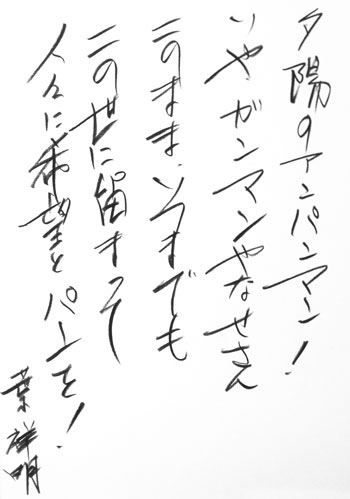 夕陽のアンパンマン!
いや、ガンマンやなせさん
このまま、いつまでも
この世に留まって
人々に希望とパンを!
葉 祥明